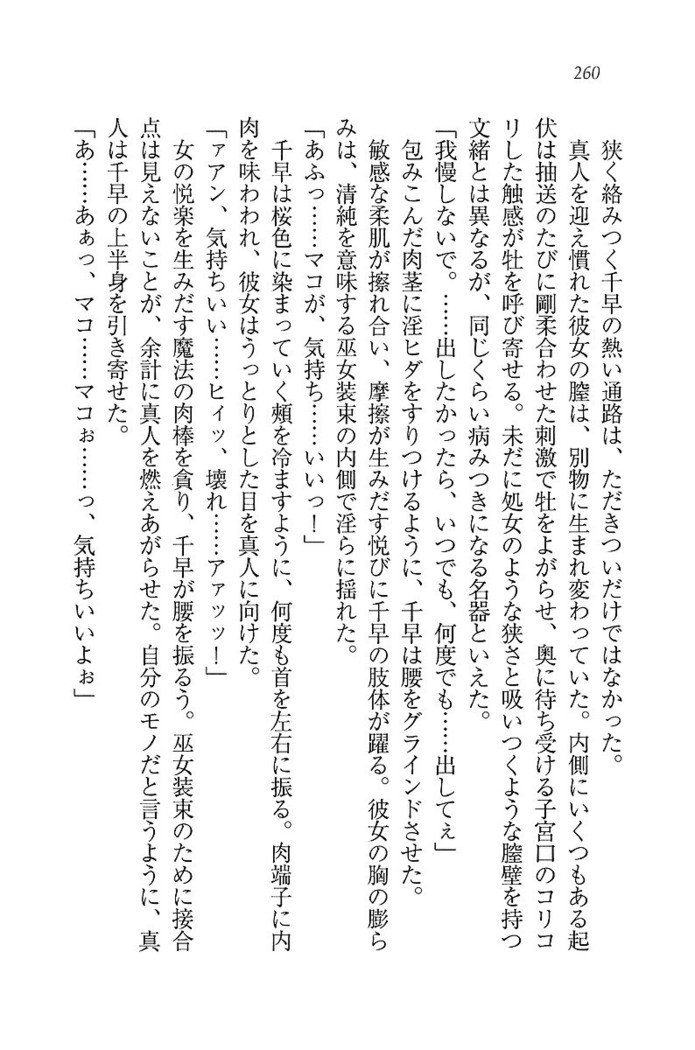 260
狭く絡みつく千早の熱い通路は、ただきついだけではなかった。
真人を迎え慣れた彼女の膣は、別物に生まれ変わっていた。内側にいくつもある起
伏は抽送のたびに剛柔合わせた刺激で牡をよがらせ、奥に待ち受ける子宮口のコリコ
リした触感が牡を呼び寄せる。未だに処女のような狭さと吸いつくような膣壁を持つ
文緒とは異なるが、同じくらい病みつきになる名器といえた。
「我慢しないで。……出したかったら、いつでも、何度でも……出してぇ」
包みこんだ肉茎に淫ヒダをすりつけるように、千早は腰をグラインドさせた。
敏感な柔肌が擦れ合い、摩擦が生みだす悦びに千早の肢体が躍る。彼女の胸の膨ら
みは、清純を意味する巫女装束の内側で淫らに揺れた。
「あふっ……マコが、気持ち……いいっ！」
千早は桜色に染まっていく頰を冷ますように、何度も首を左右に振る。肉端子に内
肉を味わわれ、彼女はうっとりとした目を真人に向けた。
「ァアン、気持ちいい……ヒィッ、壊れ……アァッッ！」
女の悦楽を生みだす魔法の肉棒を貪り、千早が腰を振るう。巫女装束のために接合
点は見えないことが、余計に真人を燃えあがらせた。自分のモノだと言うように、真
人は千早の上半身を引き寄せた。
「あ……あぁっ、マコ……マコぉ……っ、気持ちいいよぉ」